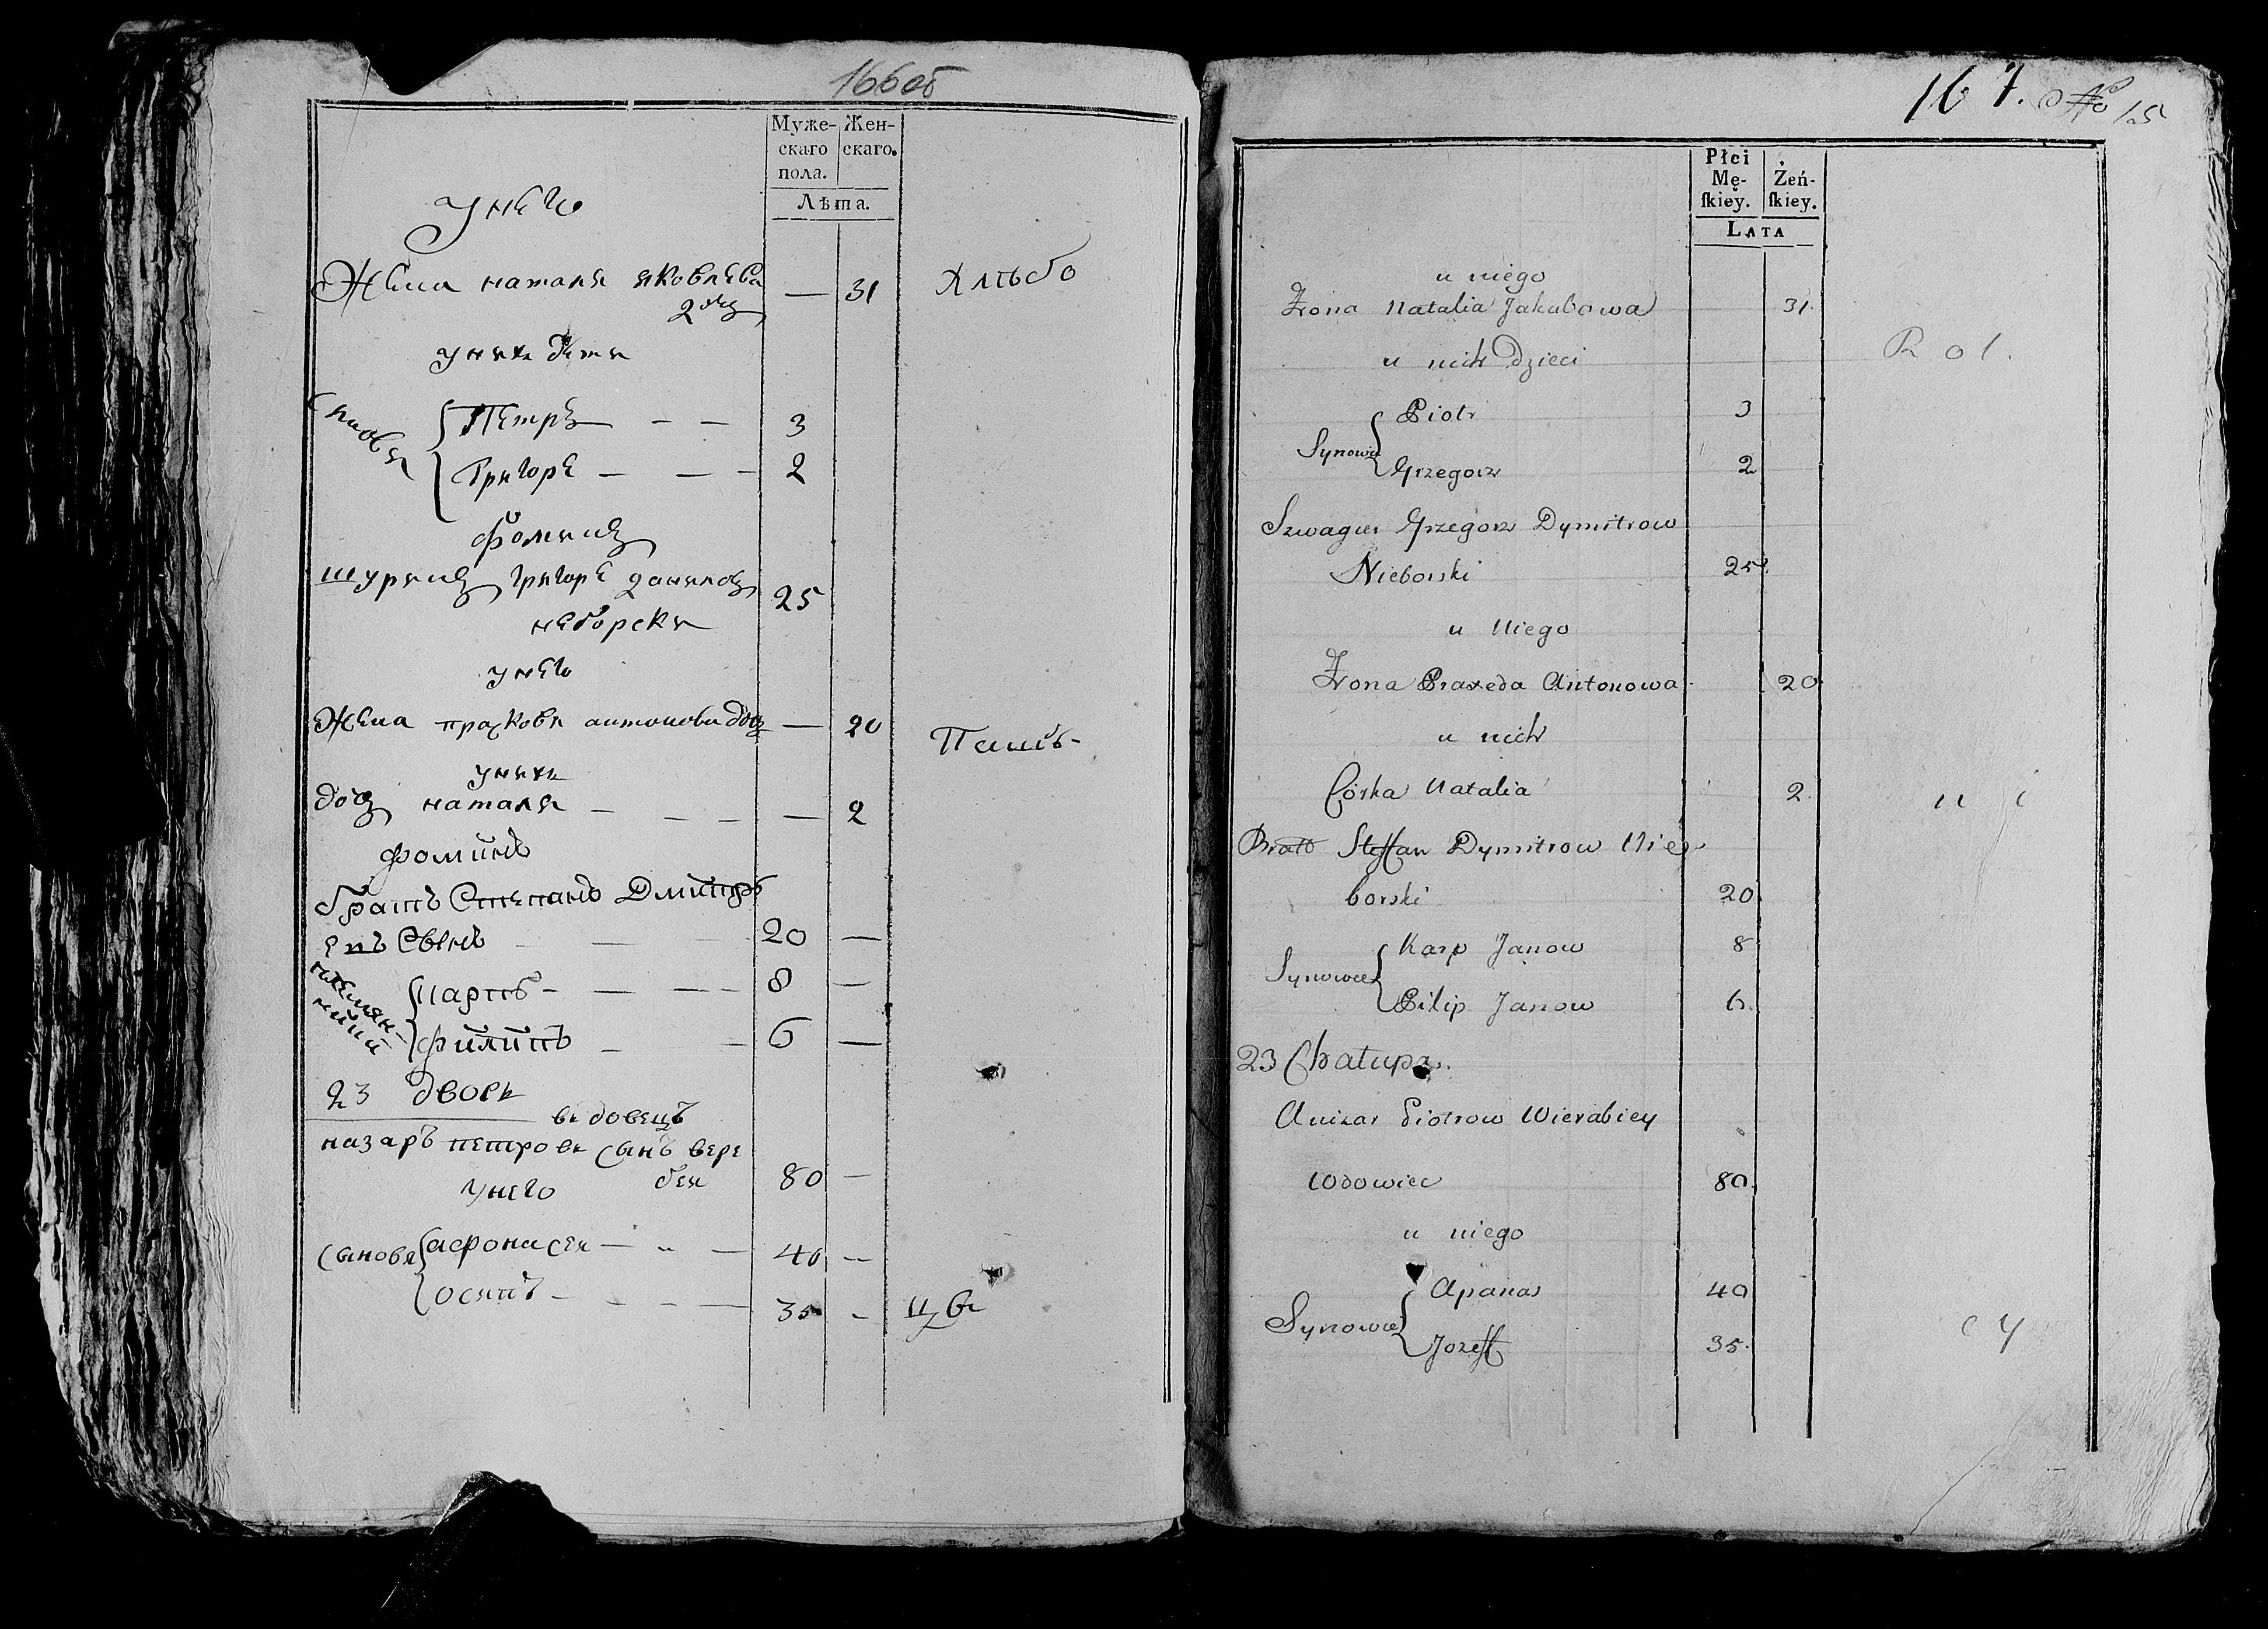 166 об
Муже-
скаго
пола.
Жен-
скаго.
Лѣта.
у него
Жена наталя яковлева — 31
2 доч
у нихъ дети
Сыновя Петръ — — 3
Григоре — — 2
Фоминъ
шуринъ григоре даниловъ 25
неборски
у него
Жена прасковя антонова доч — 20
у нихъ
доч наталя — — — — 2
фоминъ
братъ Степанъ Дмитр
евъ Сынъ — — 20 —
племян-
ники
карпъ — — — 8 —
филипъ — — 6 —
23 дворъ
вдовецъ
назаръ петровъ Сынъ вере
беи 80 —
у него
Сыновя афонасеи — „ — 40 —
осипъ — — — — 35 —
167. No 15
Płci
Mę-
ſkiey.
Żeń-
ſkiey.
Lata
u niego
Żona Natalia Jakubowa 31.
Rol.
u nich Dzieci
Piotr 3
Synowie
Grzegorz 2
Szwagier Grzegorz Dymitrow
Nieborski 25.
u Niego
Żona Praxeda Antonowa 20
u nich
Córka Natalia 2.
ni
Bratt Steffan Dymitrow Nie-
borski 20
Karp Janow 8
Synowce
Pilip Janow 6.
23 Chałupa.
Anizar Piotrow Wierabiey
Wdowiec 80.
u niego
Apanas 40
Synowie
Jozeff 35.
cy